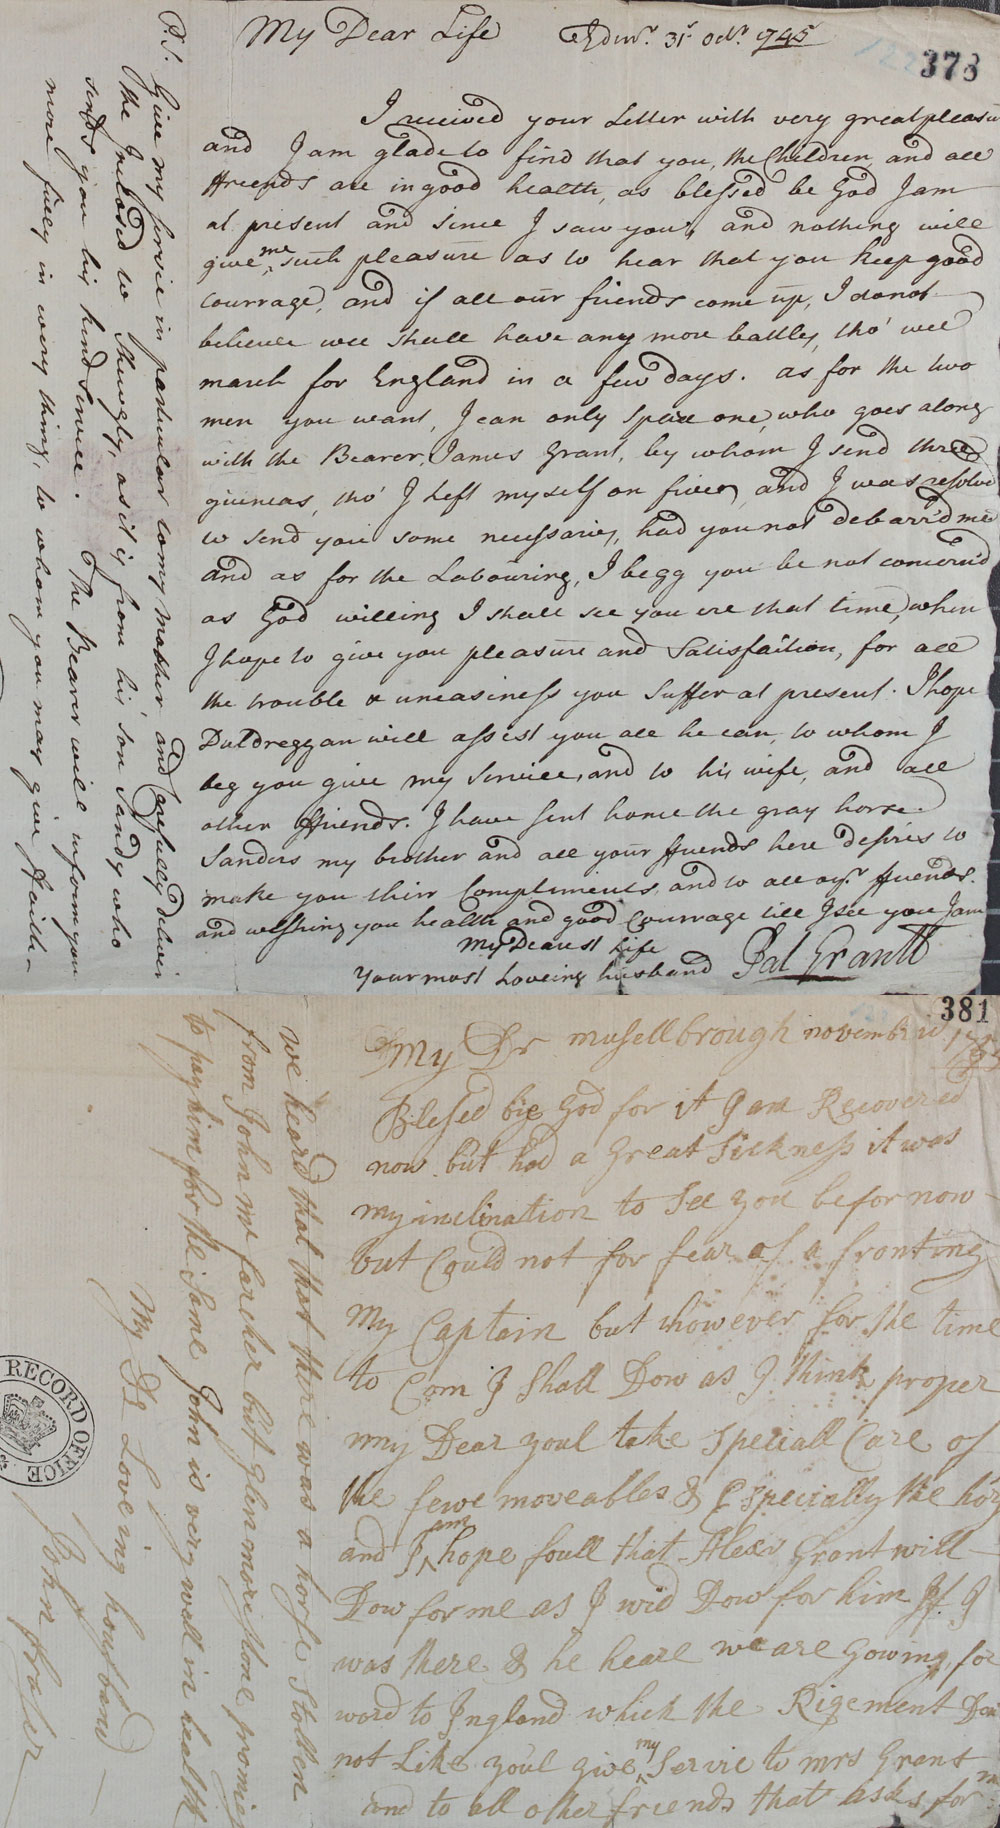 My Dear Life Edinr. 31t. Octr. 1745
373
I received your Letter with very great pleasu
and I am glade to find that you, the Children, and all
ffreends are in good health, as blessed be God I am
at present and since I saw you, and nothing will
give me such pleasure as to hear that you keep good
Courrage, and if all our friends come up, I do not
believe wee shall have any more battles, tho' wee
march for England in a few days. as for the two
men you want, I can only spare one, who goes along
with the Bearer, James Grant, by whom I send three
guineas, tho' I left myself on five, and I was resolved
to send you some necessaries, had you not debarr'd me
and as for the Labouring, I begg you be not concern'd
as God willing I shall see you ere that time, when
I hope to give you pleasure and Satisfaction, for all
the trouble & uneasiness you suffer at present. I hope
Duldreggan will assist you all he can, to whom I
beg you give my Service, and to his wife, and all
other ffriends. I have sent home the gray horse.
Sanders my brother and all your ffriends here desires to
make you their Compliments, and to all oyr. ffriends.
and wishing you health and good Courrage till I see you I am
My Dearest Life
Your most Loveing husband Pat Grantt
P.S. Give my service in particular to my Mother and Carefully deliver
the Inclosed to Thurogly, as it is from his son Sandy who
sends you his kind Service. The Bearer will inform you
more fully in every thing, to whom you may give ffaith
381
My Dr musellbrough november 1745
Blesed bie God for it I am Recovered
now but had a Great Sickness it was
my inclination to See you befor now
but Could not for fear of a fronting
My Captain but however for the time
to Com I Shall Dow as I think proper
my Dear youl take Speciall Care of
the fewe moveables & Especially the hors
and I am hope foull that Alexr Grant will
Dow for me as I wid Dow for him If I
was there & he heare we are Gowing for
word to Ingland which the Rigement Dou
not Like youl give my Servie to Mrs Grant
and to all other friends that asks for me
we heard that that there was a horse Stollen
from John me farcher but glenmorestone promies
to pay him for the Same John is very well in health
My Dr Loveing housband
John fraser
RECORD OFFICE